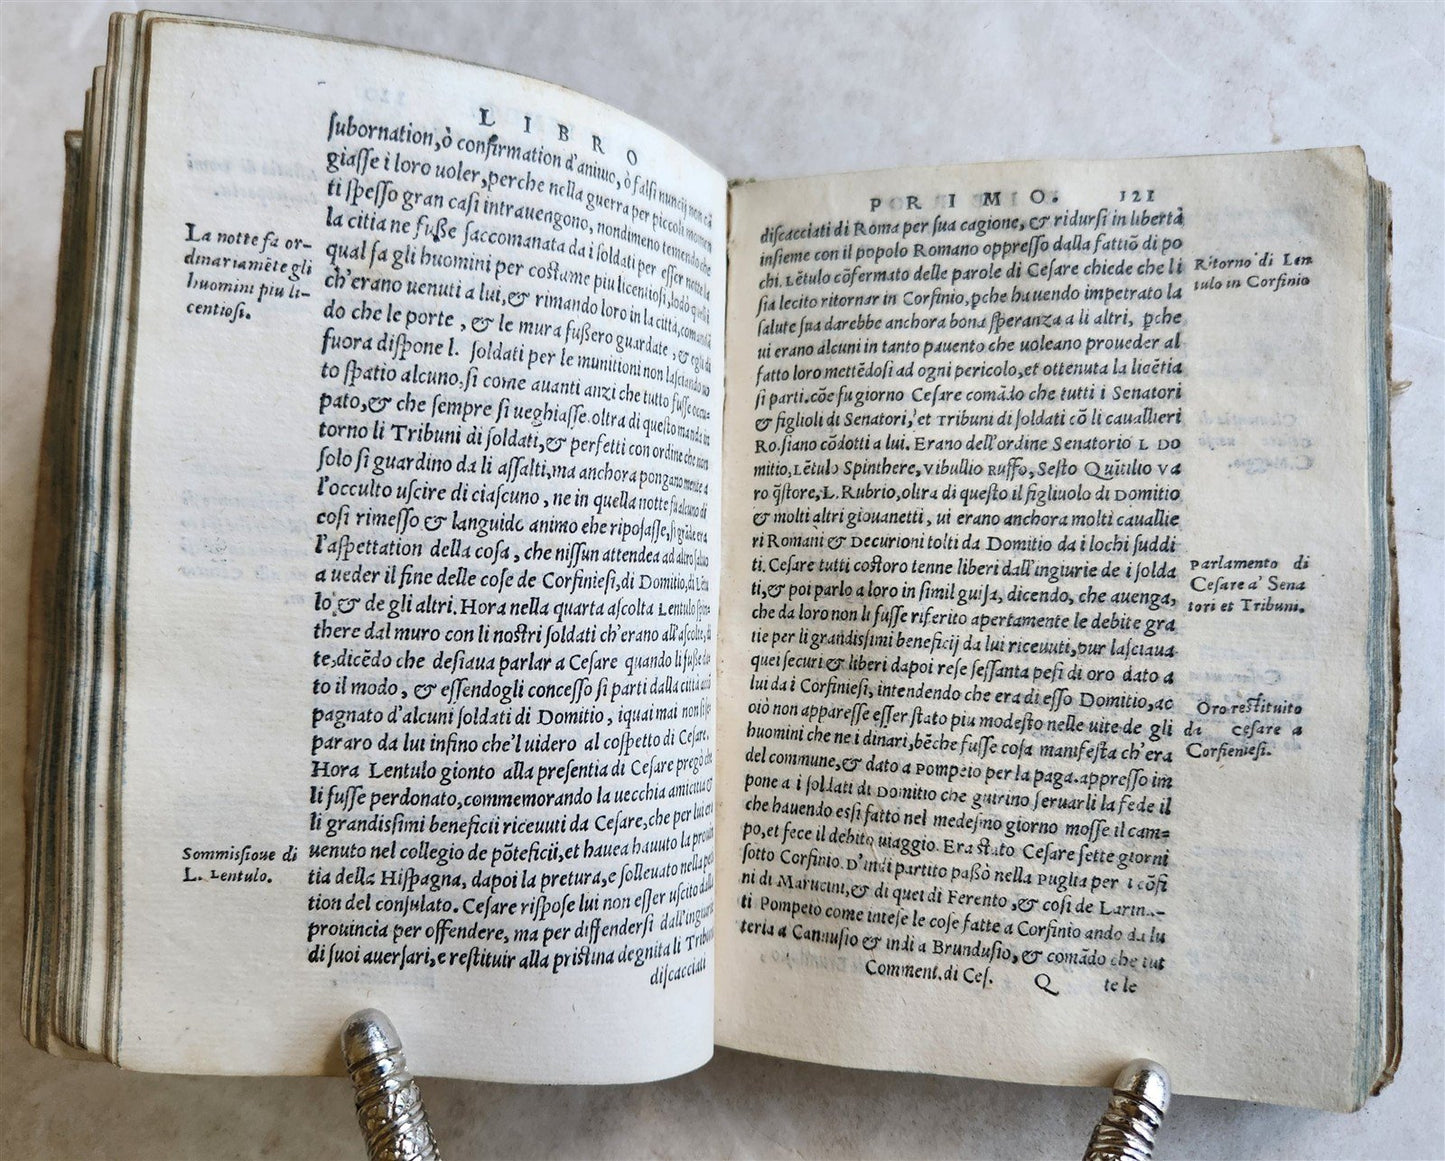 LIBRO
ſubornation, ò confirmation d'animo, ò falſi nuncij non cã
giaſſe i loro uoler, perche nella guerra per piccoli momen
ti ſpeſſo gran caſi intrauengono, nondimeno temendo che
la citta ne fuſſe ſaccomanata da i ſoldati per eſſer notte la
qual fa gli huomini per coſtume piu licentioſi, lodò quelli
ch'erano uenuti a lui, & rimando loro in la città, comandã
do che le porte, & le mura fuſſero guardate, & egli di
fuora diſpone l. ſoldati per le munitioni non laſciando uo
to ſpatio alcuno. ſi come auanti anzi che tutto fuſſe occu-
pato, & che ſempre ſi ueghiaſſe. oltra di queſto manda in
torno li Tribuni di ſoldati, & perfetti con ordine che non
ſolo ſi guardino da li aſſalti, ma anchora pongano mente a
l'occulto uſcire di ciaſcuno, ne in quella notte fu alcuno di
coſi rimeſſo & languido animo ehe ripoſaſſe, ſi grãde era
l'aſpettation della coſa, che niſſun attendea ad altro ſaluo
a ueder il fine delle coſe de Corfinieſi, di Domitio, di Lẽtu
lo, & de gli altri. Hora nella quarta aſcolta Lentulo ſpin-
there dal muro con li noſtri ſoldati ch'erano all'aſcolte, di
te, dicẽdo che deſiaua parlar a Ceſare quando li fuſſe da-
to il modo, & eſſendogli conceſſo ſi parti dalla città accõ
pagnato d'alcuni ſoldati di Domitio, iquai mai non ſi ſe-
pararo da lui infino che'l uidero al coſpetto di Ceſare.
Hora Lentulo gionto alla preſentia di Ceſare pregò che
li fuſſe perdonato, commemorando la uecchia amicitia &
li grandiſſimi beneficii riceuuti da Ceſare, che per lui era
uenuto nel collegio de põteficii, et hauea hauuto la prouin
tia della Hiſpagna, dapoi la pretura, e ſolleuato nella peti
tion del conſulato. Ceſare riſpoſe lui non eſſer uſcito dalla
prouincia per offendere, ma per diffenderſi dall'ingiuria
di ſuoi auerſari, e reſtituir alla priſtina degnita li Tribuni
diſcacciati
La notte fa or-
dinariamẽte gli
huomini piu li-
centioſi.
Sommiſſioue di
L. Lentulo.
PORIMO. 121
diſcacciati di Roma per ſua cagione, & ridurſi in libertà
inſieme con il popolo Romano oppreſſo dalla fattiõ di po
chi. Lẽtulo cõfermato delle parole di Ceſare chiede che li
ſia lecito ritornar in Corfinio, ꝑche hauendo impetrato la
ſalute ſua darebbe anchora bona ſperanza a li altri, ꝑche
ui erano alcuni in tanto pauento che uoleano proueder al
fatto loro mettẽdoſi ad ogni pericolo, et ottenuta la licẽtia
ſi parti. cõe fu giorno Ceſare comãdo che tutti i Senatori
& figlioli di Senatori, et Tribuni di ſoldati cõ li cauallieri
Ro. ſiano cõdotti a lui. Erano dell'ordine Senatorio L Do
mitio, Lẽtulo Spinthere, Vibullio Ruffo, Seſto Quĩtilio Va
ro q̃ſtore, L. Rubrio, oltra di queſto il figliuolo di Domitio
& molti altri giouanetti, ui erano anchora molti cauallie
ri Romani & Decurioni tolti da Domitio da i lochi ſuddi
ti. Ceſare tutti coſtoro tenne liberi dall'ingiurie de i ſolda
ti, & poi parlo a loro in ſimil guiſa, dicendo, che auenga,
che da loro non li fuſſe riferito apertamente le debite gra
tie per li grandiſſimi beneficij da lui riceuuti, pur laſciaua
quei ſecuri & liberi dapoi reſe ſeſſanta peſi di oro dato a
lui da i Corfinieſi, intendendo che era di eſſo Domitio, ac
oiò non appareſſe eſſer ſtato piu modeſto nelle uite de gli
huomini che ne i dinari, bẽche fuſſe coſa manifeſta ch'era
del commune, & dato a Pompeio per la paga. appreſſo im
pone a i ſoldati di Domitio che guirino ſeruarli la fede il
che hauendo eſſi fatto nel medeſmo giorno moſſe il cam-
po, et fece il debito uiaggio. Era ſtato Ceſare ſette giorni
ſotto Corfinio. D'indi partito paſſò nella Puglia per i cõfi
ni di Marucini, & di quei di Ferento, & coſi de Larina-
ti Pompeio come inteſe le coſe fatte a Corfinio ando da lu
teria a Cannuſio & indi a Brunduſio, & comãdo che tut
Comment. di Ceſ. Q te le
Ritorno di Len
tulo in Corfinio
Parlamento di
Ceſare a' Sena
tori et Tribuni.
Oro reſtituito
da Ceſare a
Corfienieſi.